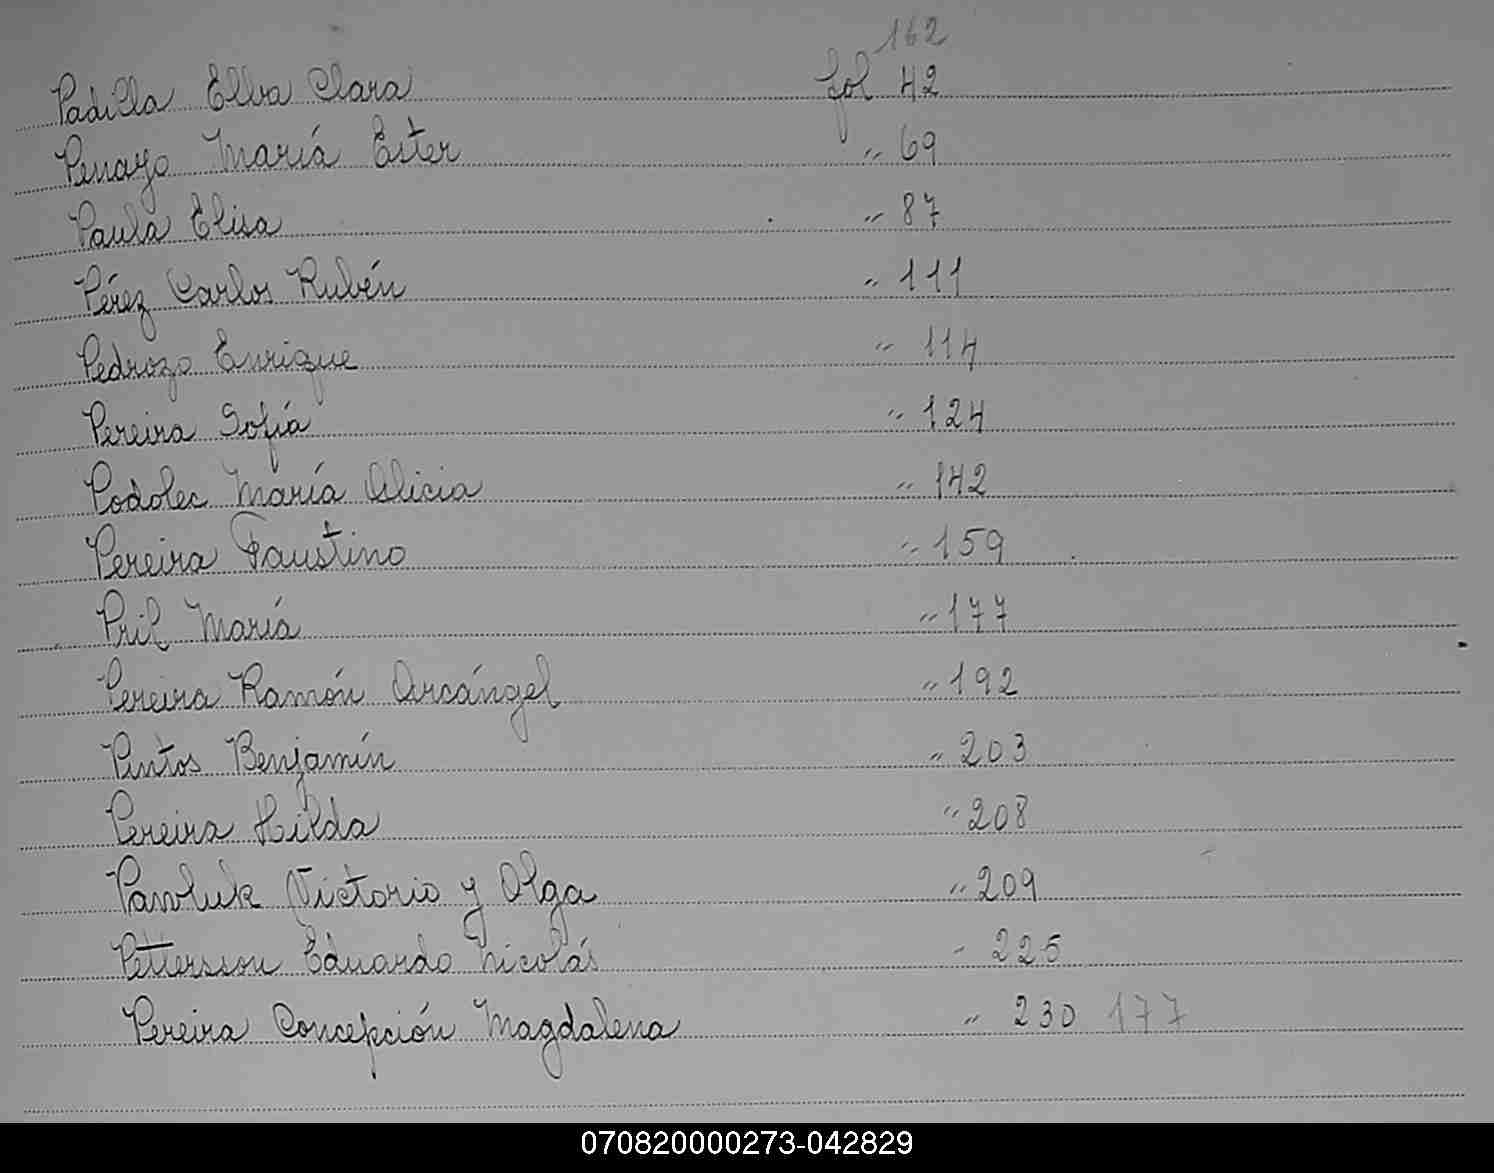 162
Padilla Elba Clara fol 42
Penayo María Ester " 69
Paula Elisa " 87
Pérez Carlos Rubén " 111
Pedrozo Enrique " 114
Pereira Sofía " 124
Podolec María Alicia " 142
Pereira Faustino " 159
Pril María " 177
Pereira Ramón Arcángel " 192
Pintos Benjamín " 203
Pereira Hilda " 208
Pawluk Victorio y Olga " 209
Pettersson Eduardo Nicolás " 225
Pereira Concepción Magdalena " 230 177
070820000273-042829